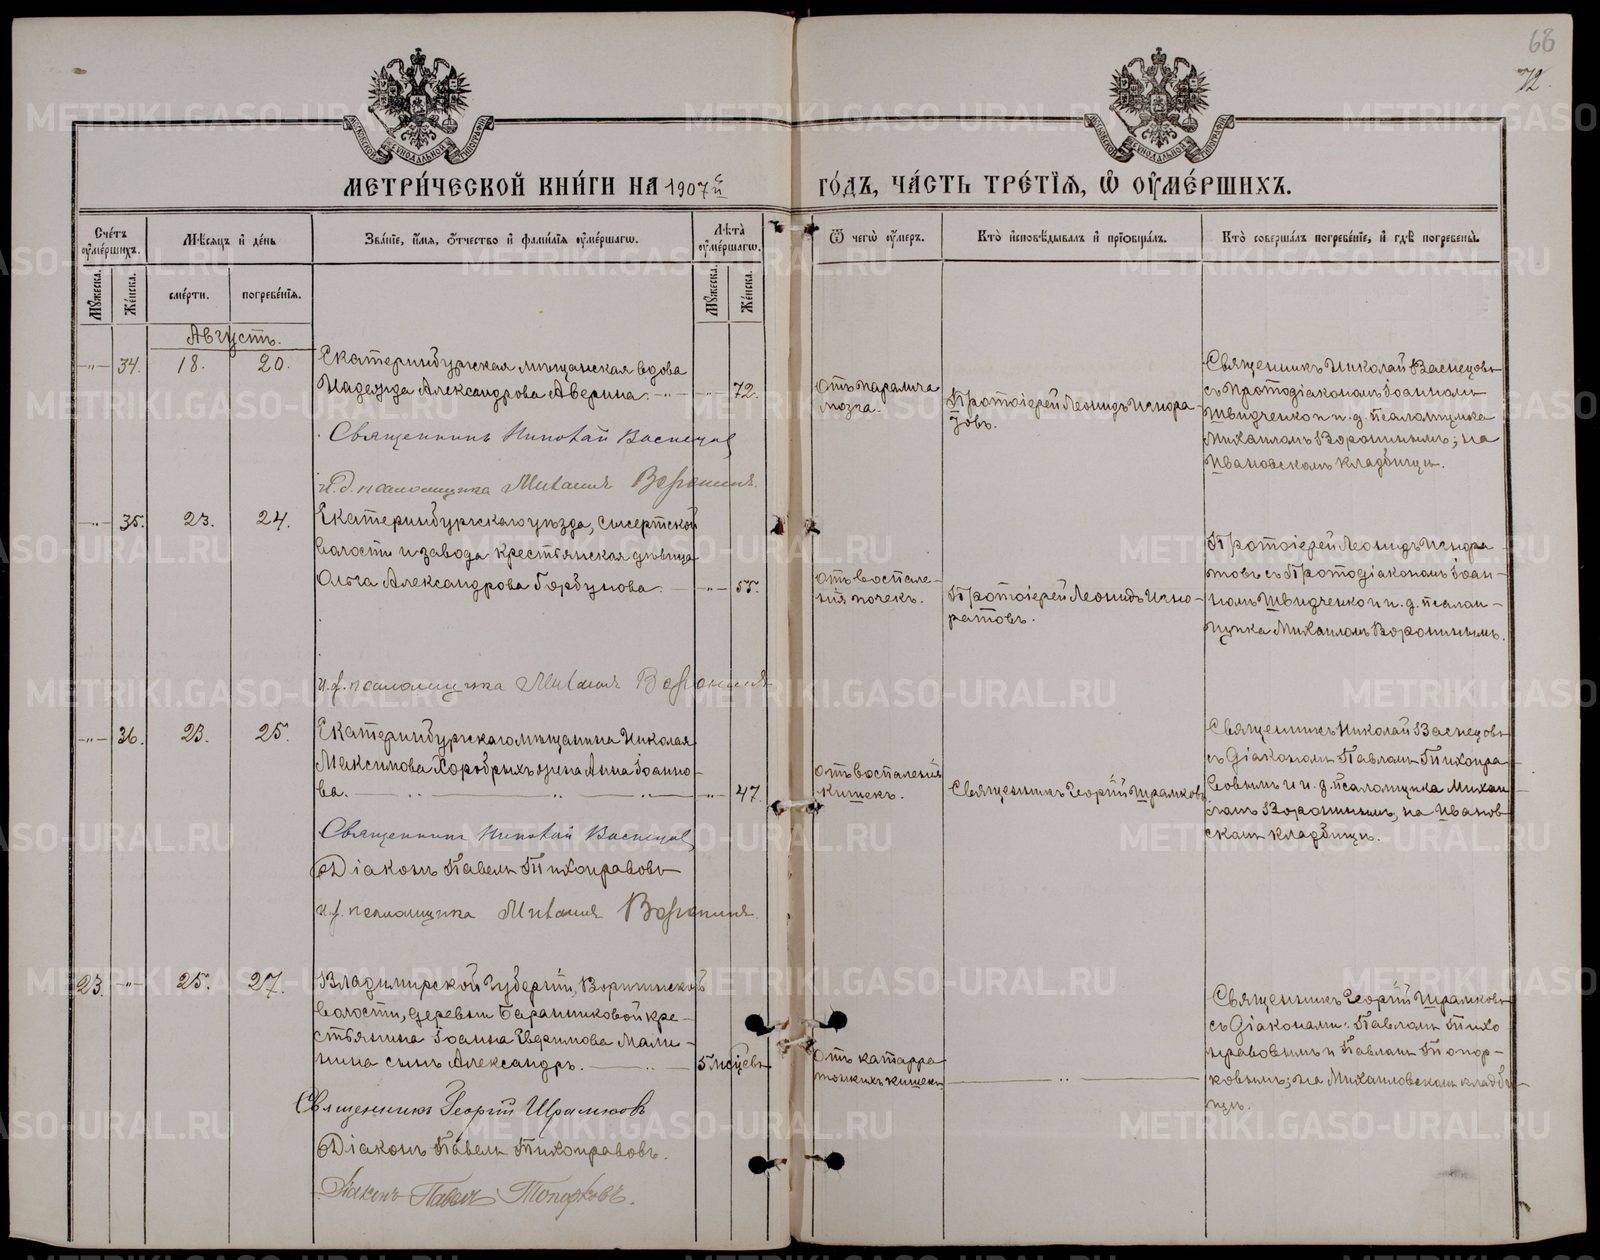 68
72.
МОСКОВСКОЙ СѴНОДАЛЬНОЙ ТИПОГРАФІИ
МОСКОВСКОЙ СѴНОДАЛЬНОЙ ТИПОГРАФІИ
МЕТРИ́ЧЕСКОЙ КНИ́ГИ НА 1907й
ГО́ДЪ, ЧА́СТЬ ТРЕ́ТІѦ, Ѡ ОУМЕ́РШИХЪ.
Сче́тъ оуме́ршихъ.
Мѣ́сяцъ и де́нь
Зва́ніе, и́мя, о́тчество и фами́лія оуме́ршагѡ.
Лѣ́та оуме́ршагѡ.
Ѿ чегѡ̀ оу́меръ.
Кто̀ исповѣ́дывалъ и пріобща́лъ.
Кто̀ соверша́лъ погребе́ніе, и гдѣ̀ погребены̀.
Му́жеска.
Же́нска.
сме́рти.
погребе́нія.
Му́жеска.
Же́нска.
Августъ.
—"— 34. 18. 20.
Екатеринбургская мѣщанская вдова
Надежда Александрова Аверина. —"— —"— 72.
Священникъ Николай Васнецов
и.д. псаломщика Михаилъ Воронинъ.
Отъ паралича
мозга.
Протоіерей Леонидъ Игнора-
товъ.
Священникъ Николай Васнецовъ
съ Протодіакономъ Іоанномъ
Швидченко и и. д. псаломщика
Михаиломъ Воронинымъ; на
Ивановскомъ кладбищѣ.
—"— 35. 23. 24.
Екатеринбургскаго уѣзда, Сысертской
волости и завода крестьянская дѣвица
Ольга Александрова Горбунова. —"— 55.
и.д. псаломщика Михаилъ Воронинъ
Отъ воспале-
нія почекъ.
Протоіерей Леонидъ Игно-
ратовъ.
Протоіерей Леонидъ Игнора-
товъ съ Протодіакономъ Іоан-
номъ Швидченко и и. д. псалом-
щика Михаиломъ Воронинымъ.
—"— 36. 23. 25.
Екатеринбургскаго мѣщанина Николая
Максимова Хоробрыхъ жена Анна Іоанно-
ва. —"— 47.
Священникъ Николай Васнецов
Діаконъ Павелъ Тихонравовъ
и.д. псаломщика Михаилъ Воронинъ.
Отъ воспаленія
кишекъ.
Священникъ Георгій Шрамковъ
Священникъ Николай Васнецовъ
съ Діакономъ Павломъ Тихонра-
вовымъ и и. д. псаломщика Михаи-
ломъ Воронинымъ, на Иванов-
скомъ кладбищѣ.
23. —"— 25. 27.
Владимірской губерніи,
волости, деревни Баранниковой кре-
стьянина Іоанна Ефимова Мали-
нина сынъ Александръ. —"— 5 мѣсяцевъ
Священникъ Георгій Шрамковъ
Діаконъ Павелъ Тихонравовъ.
Діаконъ Павелъ Топорковъ.
Отъ катарра
тонкихъ кишекъ
—"—
Священникъ Георгій Шрамковъ
съ Діаконами: Павломъ Тихо
нравовымъ и Павломъ Топор-
ковымъ; на Михаиловскомъ кладби-
щѣ.
METRIKI.GASO-URAL.RU